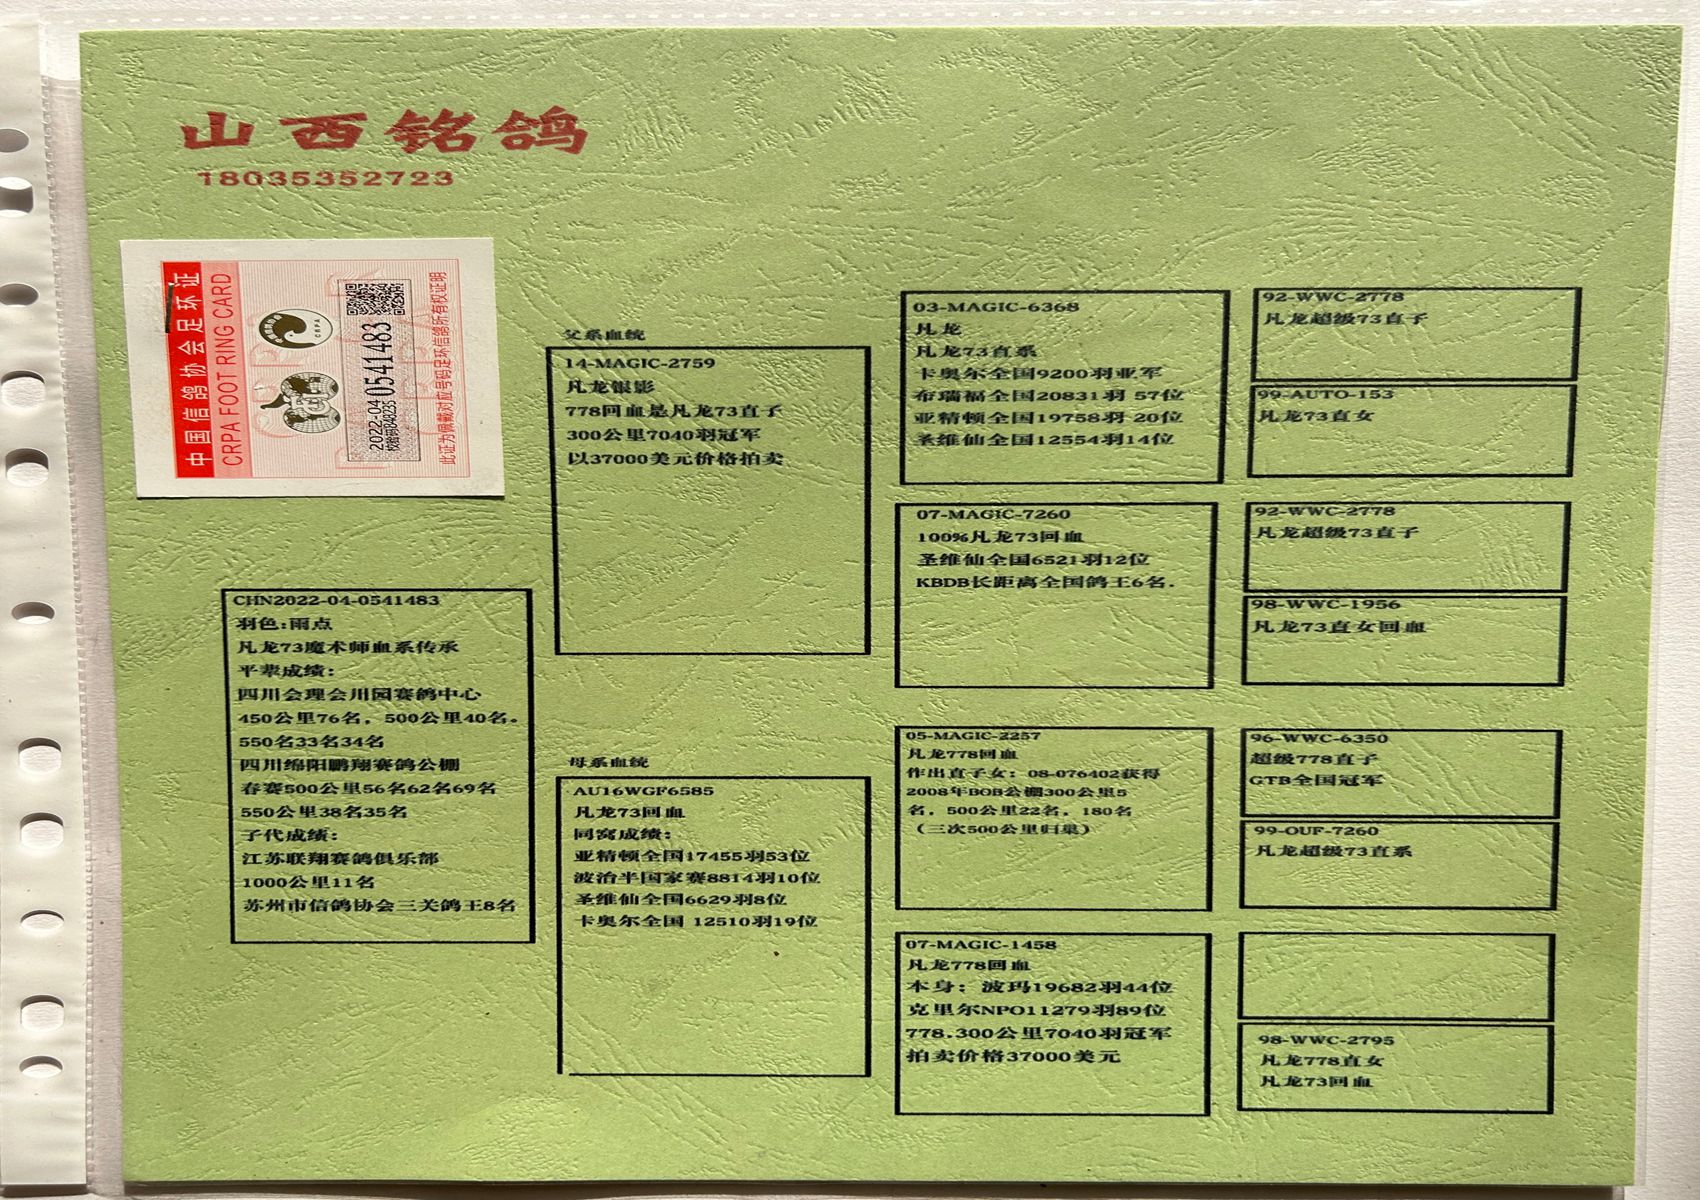 山西铭鸽
18035352723
中国信鸽协会足环证
CRPA FOOT RING CARD
CRPA
2022-04 0541483
校验码848235
此证为佩戴对应号码足环信鸽所有权证明
CHN2022-04-0541483
羽色:雨点
凡龙73魔术师血系传承
平辈成绩:
四川会理会川园赛鸽中心
450公里76名，500公里40名。
550名33名34名
四川绵阳鹏翔赛鸽公棚
春赛500公里56名62名69名
550公里38名35名
子代成绩:
江苏联翔赛鸽俱乐部
1000公里11名
苏州市信鸽协会三关鸽王8名
父系血统
14-MAGIC-2759
凡龙银影
778回血是凡龙73直子
300公里7040羽冠军
以37000美元价格拍卖
母系血统
AU16WGF6585
凡龙73回血
同窝成绩:
亚精顿全国17455羽53位
波治半国家赛8814羽10位
圣维仙全国6629羽8位
卡奥尔全国 12510羽19位
03-MAGIC-6368
凡龙
凡龙73直系
卡奥尔全国9200羽亚军
布瑞福全国20831羽 57位
亚精顿全国19758羽 20位
圣维仙全国12554羽14位
07-MAGIC-7260
100%凡龙73回血
圣维仙全国6521羽12位
KBDB长距离全国鸽王6名.
05-MAGIC-2257
凡龙778回血
作出直子女：08-076402获得
2008年BOB公棚300公里5
名，500公里22名，180名
（三次500公里归巢）
07-MAGIC-1458
凡龙778回血
本身：波玛19682羽44位
克里尔NPO11279羽89位
778.300公里7040羽冠军
拍卖价格37000美元
92-WWC-2778
凡龙超级73直子
99-AUTO-153
凡龙73直女
92-WWC-2778
凡龙超级73直子
98-WWC-1956
凡龙73直女回血
96-WWC-6350
超级778直子
GTB全国冠军
99-OUF-7260
凡龙超级73直系
98-WWC-2795
凡龙778直女
凡龙73回血